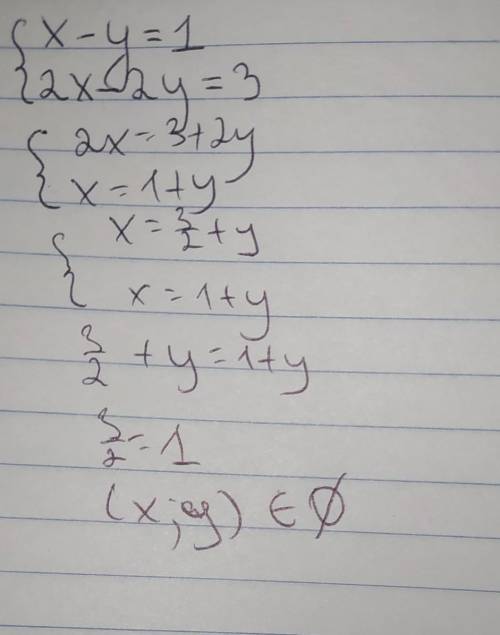 x - y = 1
2x - 2y = 3
2x = 3 + 2y
x = 1 + y
x = 3/2 + y
x = 1 + y
3/2 + y = 1 + y
3/2 = 1
(x; y) ∈ ∅